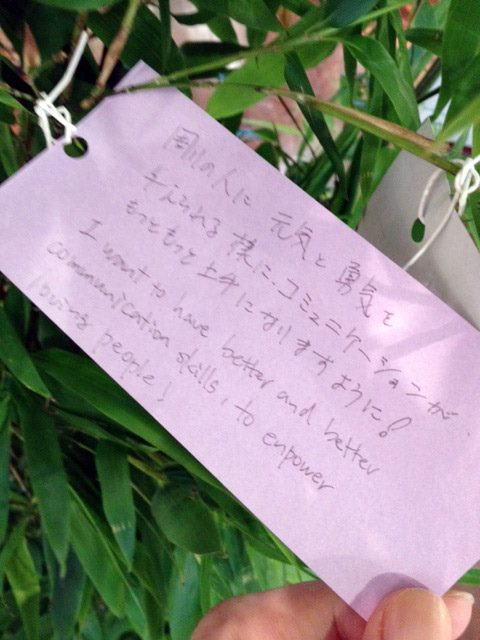 周りの人に 元気と勇気を
与えられる様に、コミュニケーションが
もっともっと上手になりますように!
I want to have better and better
communication skills, to enpower
loving people!